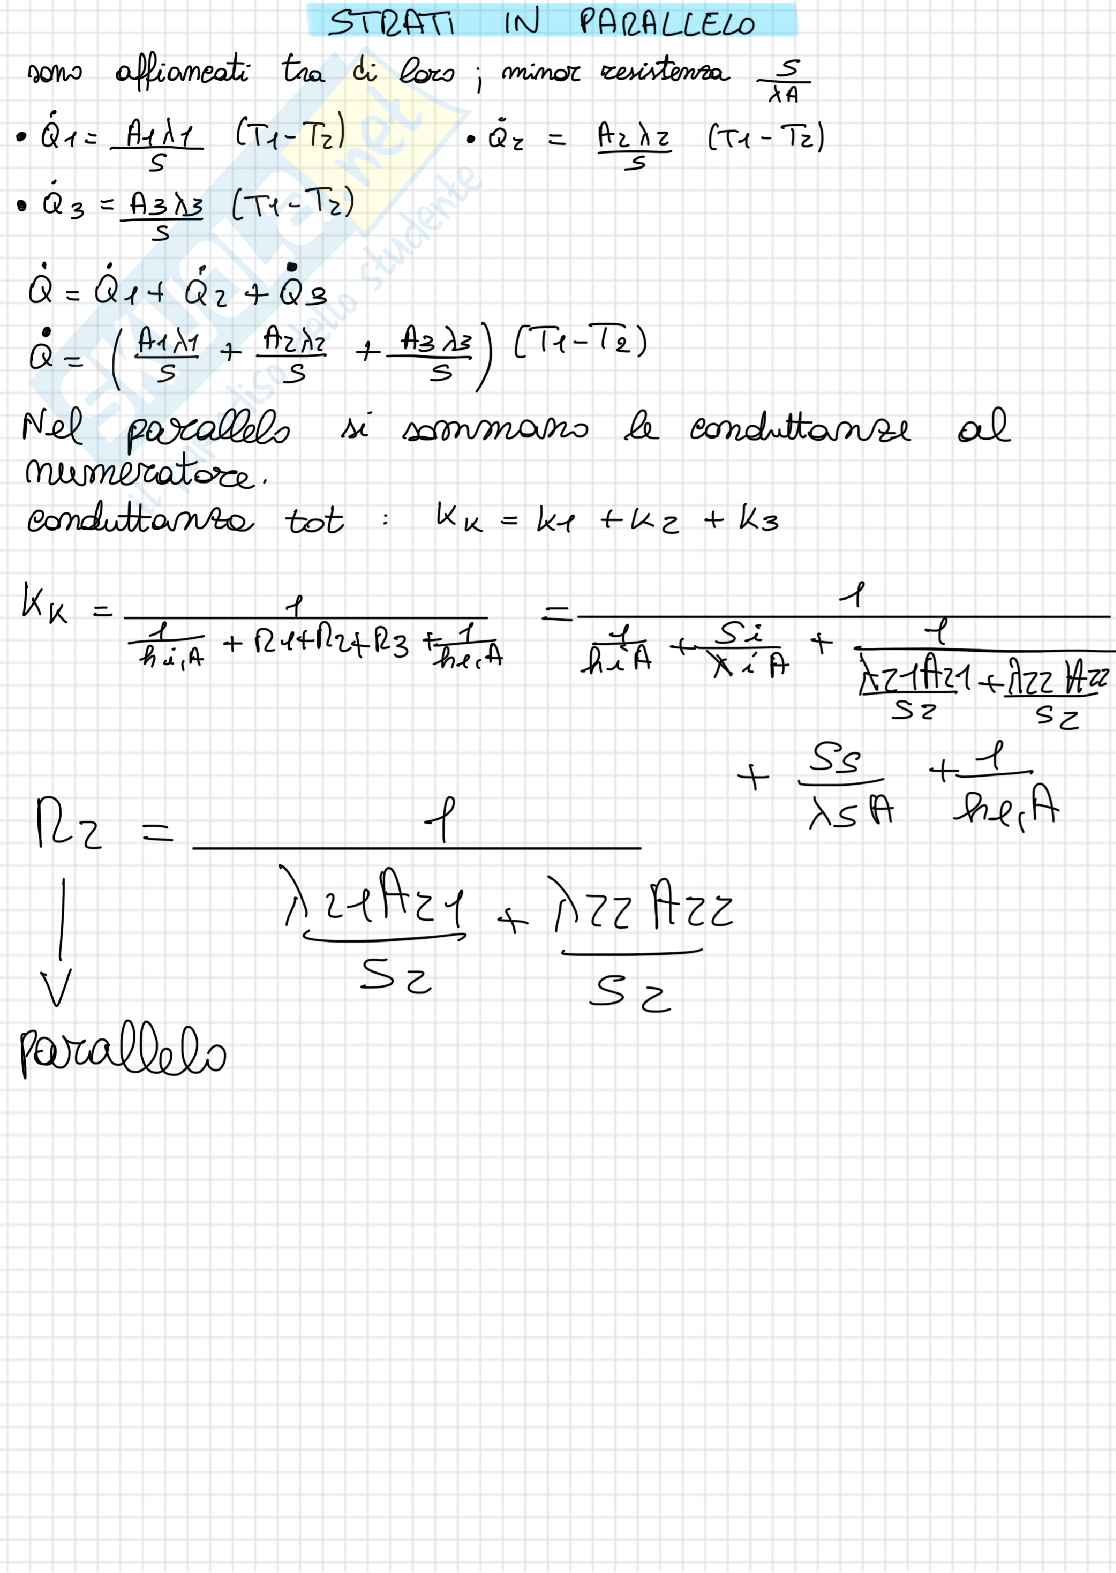 STRATI IN PARALLELO
sono affiancati tra di loro ; minor resistenza S/λA
• Q̇1 = A1λ1/S (T1-T2) • Q̇2 = A2λ2/S (T1-T2)
• Q̇3 = A3λ3/S (T1-T2)
Q̇ = Q̇1 + Q̇2 + Q̇3
Q̇ = (A1λ1/S + A2λ2/S + A3λ3/S) (T1-T2)
Nel parallelo si sommano le conduttanze al
numeratore.
conduttanza tot : KK = K1 + K2 + K3
KK = 1/(1/hi,A + R1+R2+R3 + 1/he,A) = 1/(1/hiA + Si/λiA + 1/(λ21A21/S2 + λ22A22/S2)
+ SS/λSA + 1/he,A)
R2 = 1/(λ21A21/S2 + λ22A22/S2)
parallelo